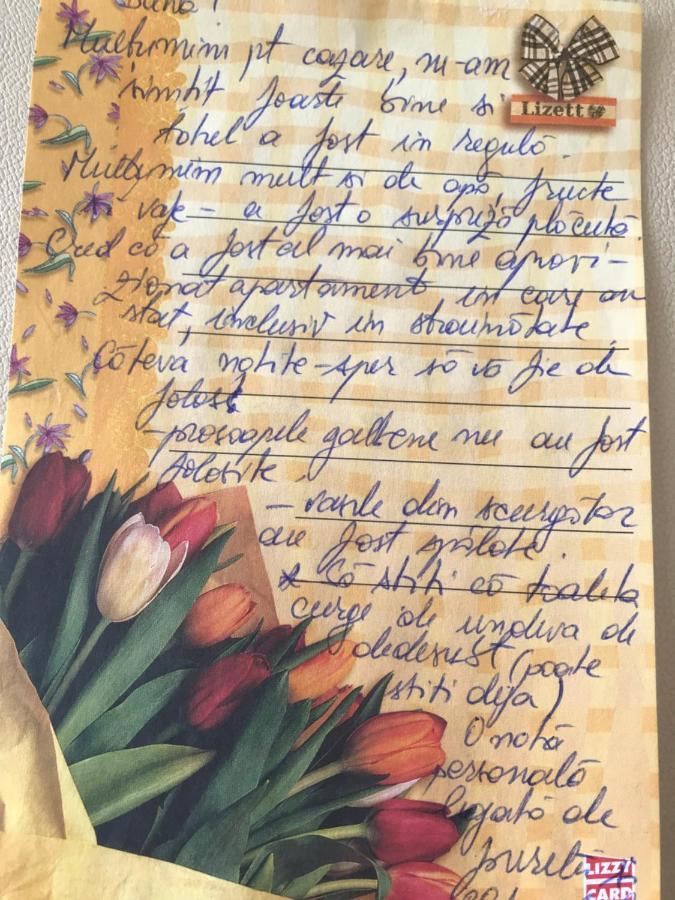 Bună!
Mulțumim pt cazare, ne-am
Lizett
simțit foarte bine și
totul a fost în regulă.
Mulțumim mult și de apă, fructe
vafe - a fost o surpriză plăcută.
Cred că a fost cel mai bine aprovi-
zionat apartament în care am
stat, inclusiv în străinătate.
Câteva notițe - sper să vă fie de
folos
- prosoapele galbene nu au fost
folosite.
- vasele din scurgător
au fost spălate.
Că știți că toaleta
curge de undeva de
dedesubt (poate
știți deja)
O notă
personală
legată de
LIZZY
CARD